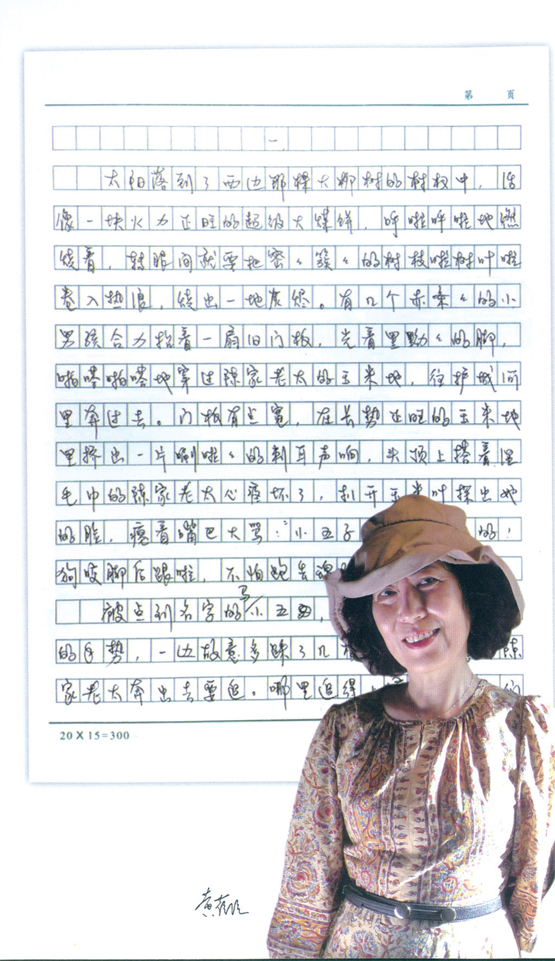 第 页
一
太阳落到了西边那棵大柳树的树杈中，活
像一块火力正旺的超级大煤饼，呼啦呼啦地燃
烧着，转眼间就要把密々簇々的树枝啦树叶啦
卷入热浪，烧出一地灰烬。有几个赤条々的小
男孩合力抬着一扇旧门板，光着黑黝々的脚，
啪嗒啪嗒地穿过陈家老太的玉米地，往护城河
里奔过去。门板有点宽，在长势正旺的玉米地
里挤出一片唰啦々的刺耳声响，头顶上搭着湿
毛巾的陈家老太心疼坏了，扒开玉米叶探出她
的脸，瘪着嘴巴大骂：“小五子 的！
狗咬脚后跟啦，不怕跑去
被点到名字的小五
的手势，一边故意多踩了几 陈
家老太奔出去要追。哪里追得 们
20×15=300
黄蓓佳